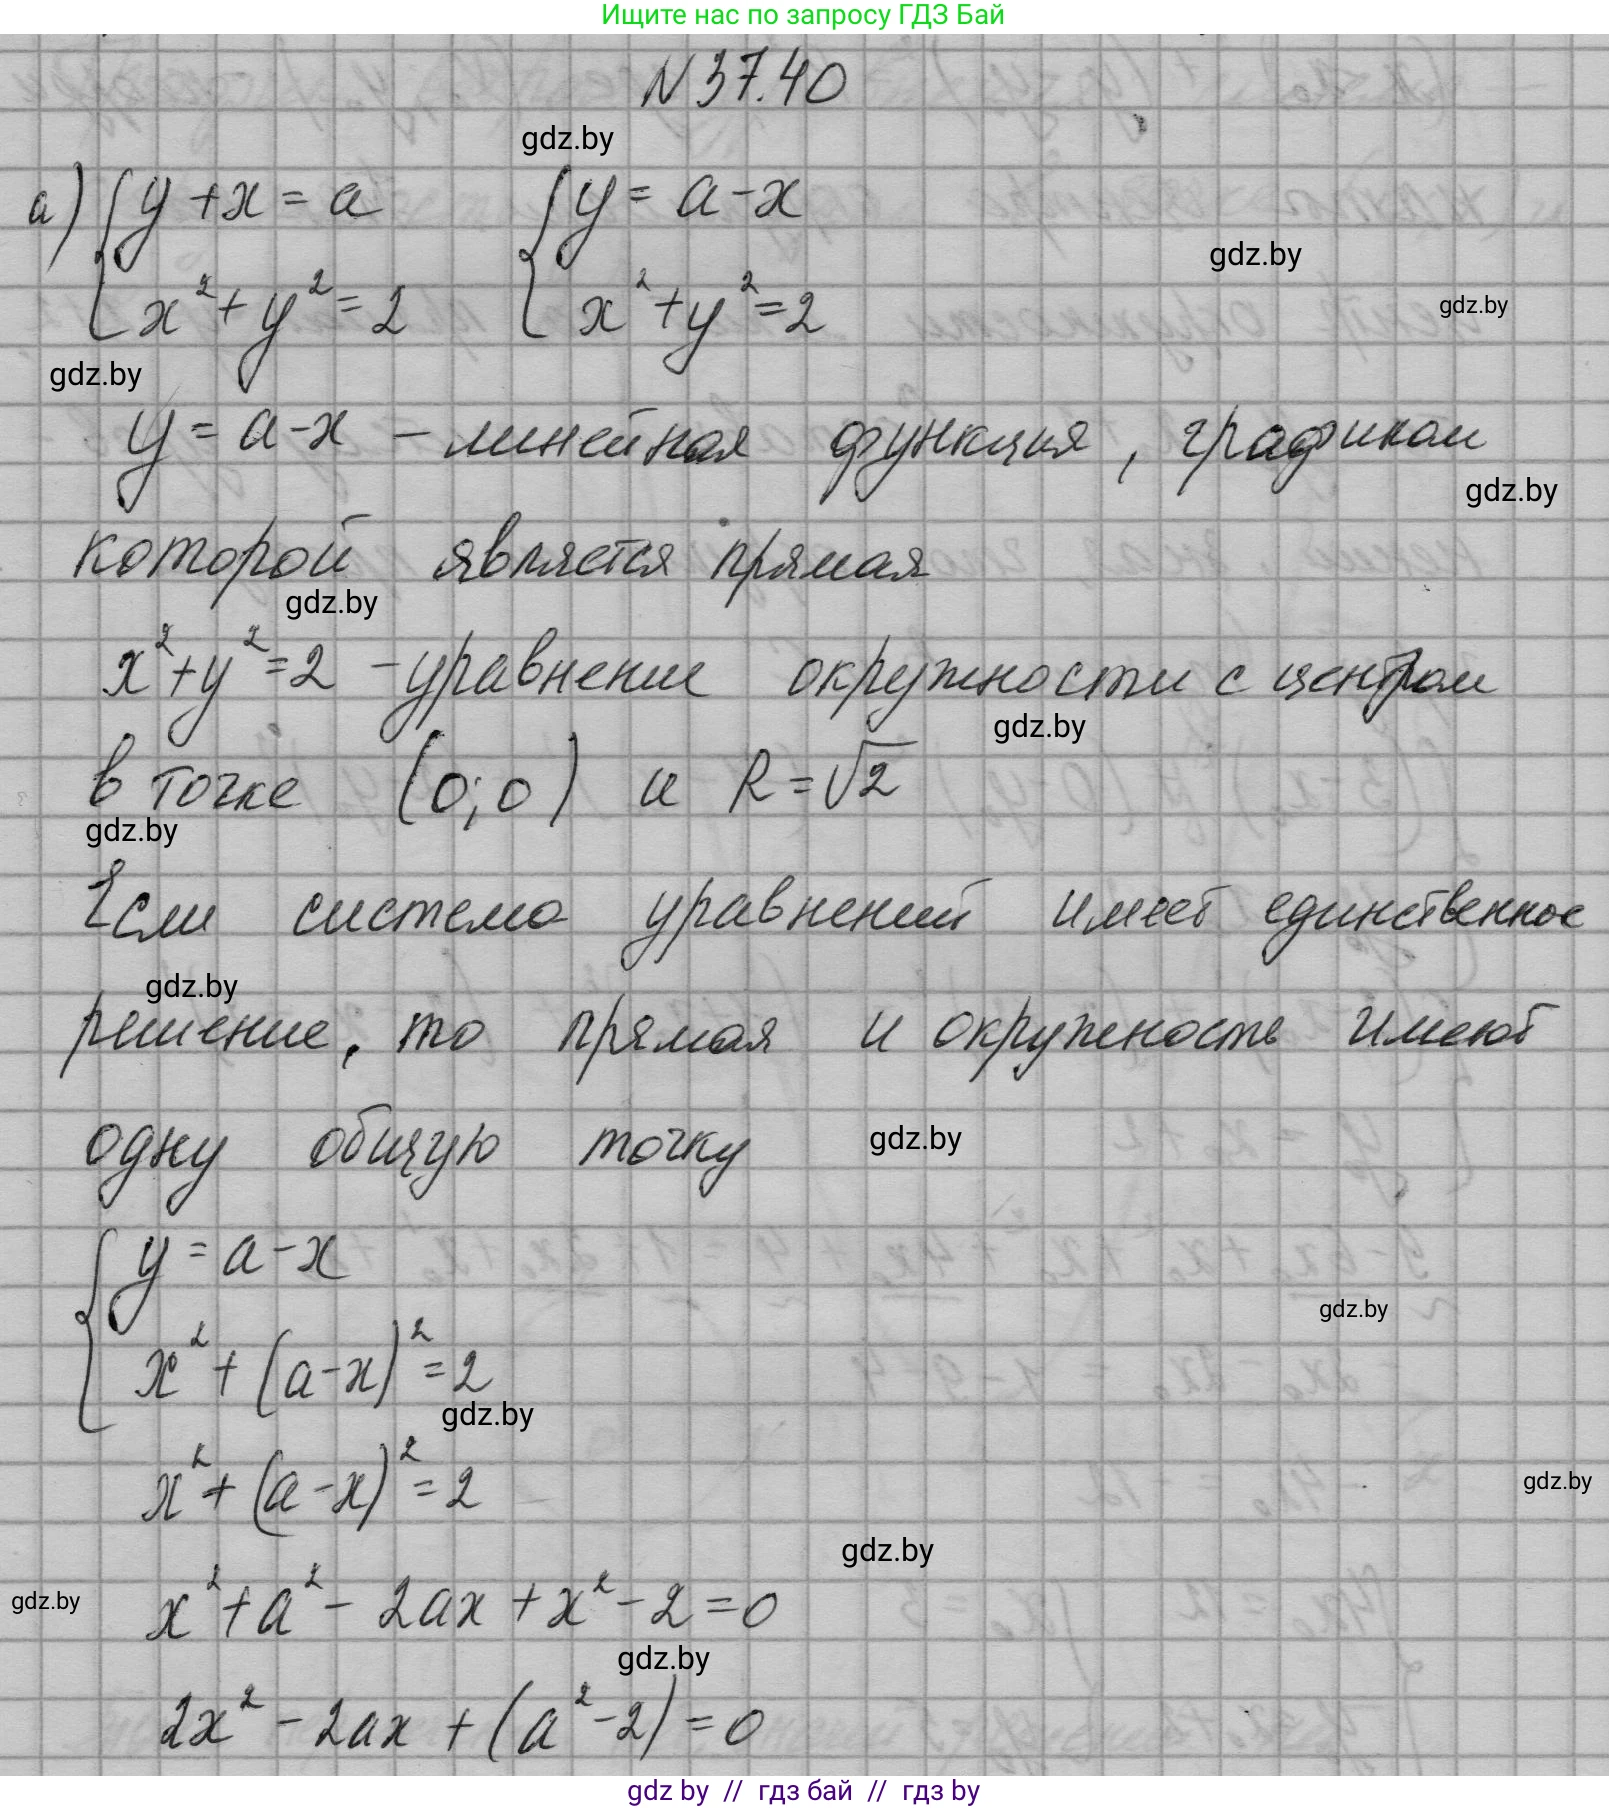 Ищите нас по запросу ГДЗ Бай
N 37.40
gdz.by
а) { y + x = a { y = a - x
gdz.by
x² + y² = 2 x² + y² = 2
gdz.by
gdz.by
y = a - x - линейная функция, графиком
gdz.by
которой является прямая
gdz.by
x² + y² = 2 - уравнение окружности с центром
gdz.by
в точке (0; 0) и R = √2
gdz.by
Если система уравнений имеет единственное
gdz.by
решение, то прямая и окружность имеют
одну общую точку
gdz.by
{ y = a - x
gdz.by
x² + (a - x)² = 2
gdz.by
x² + (a - x)² = 2
gdz.by
gdz.by
x² + a² - 2ax + x² - 2 = 0
gdz.by
gdz.by
2x² - 2ax + (a² - 2) = 0
gdz by // гдз бай // гдз by